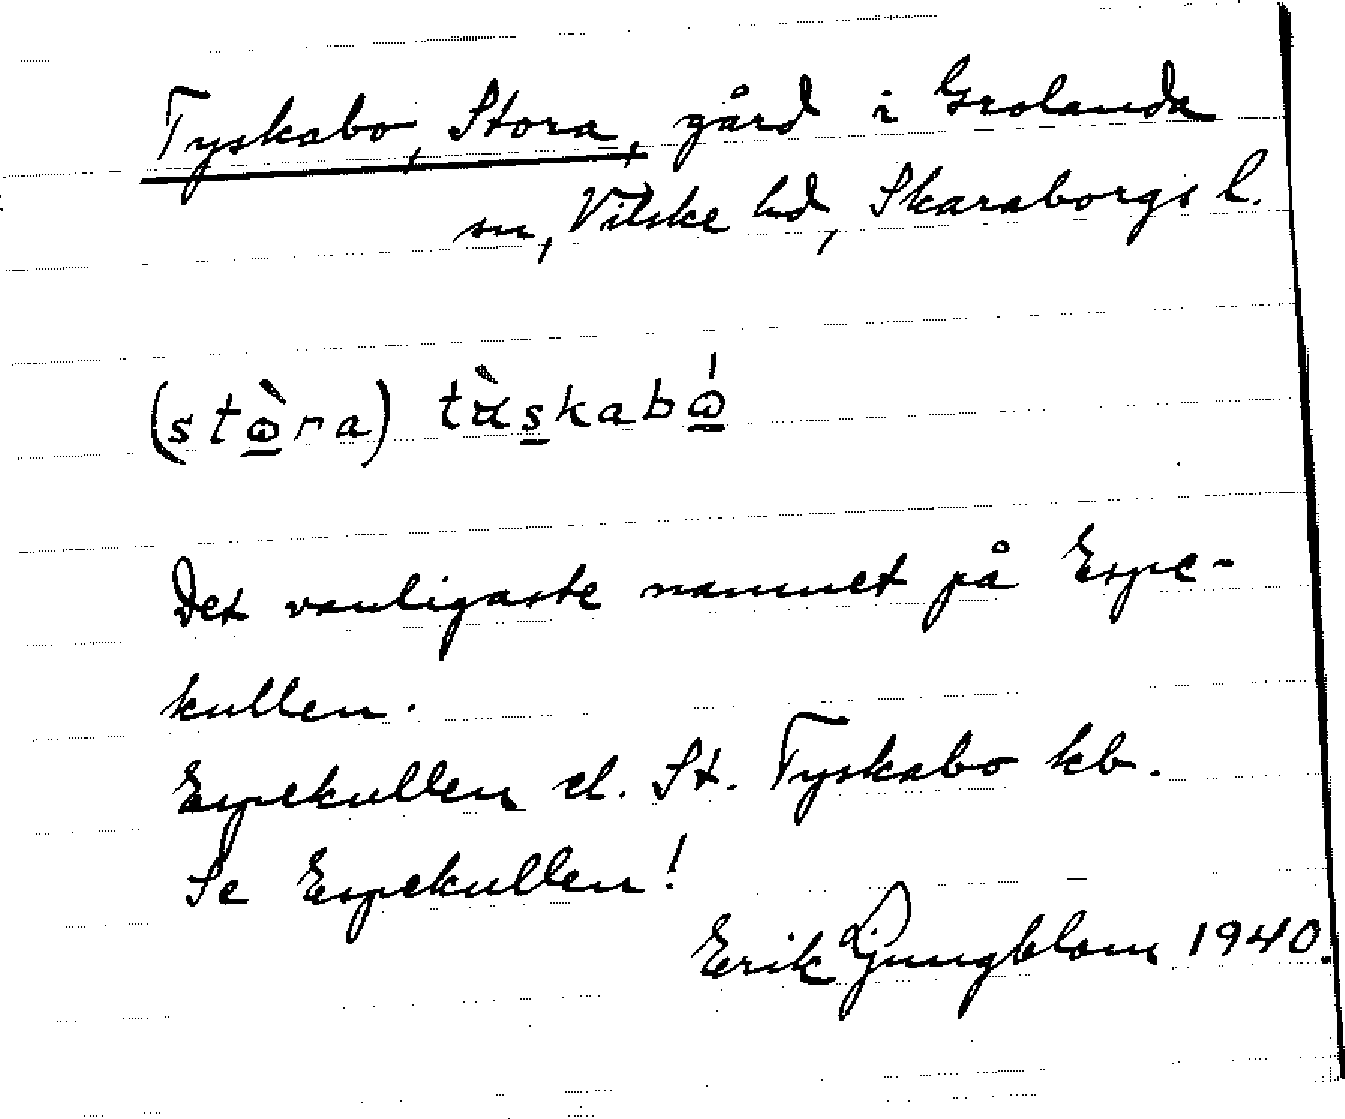 Tyskabo, Stora, gård i Grolanda
sn, Vilske hd, Skaraborgs l.
(stò̱ra) tὰs̱kabó̱
Det vanligaste namnet på Espe-
kullen.
Espekullen el. St. Tyskabo kb.
Se Espekullen!
Erik Ljungblom 1940.